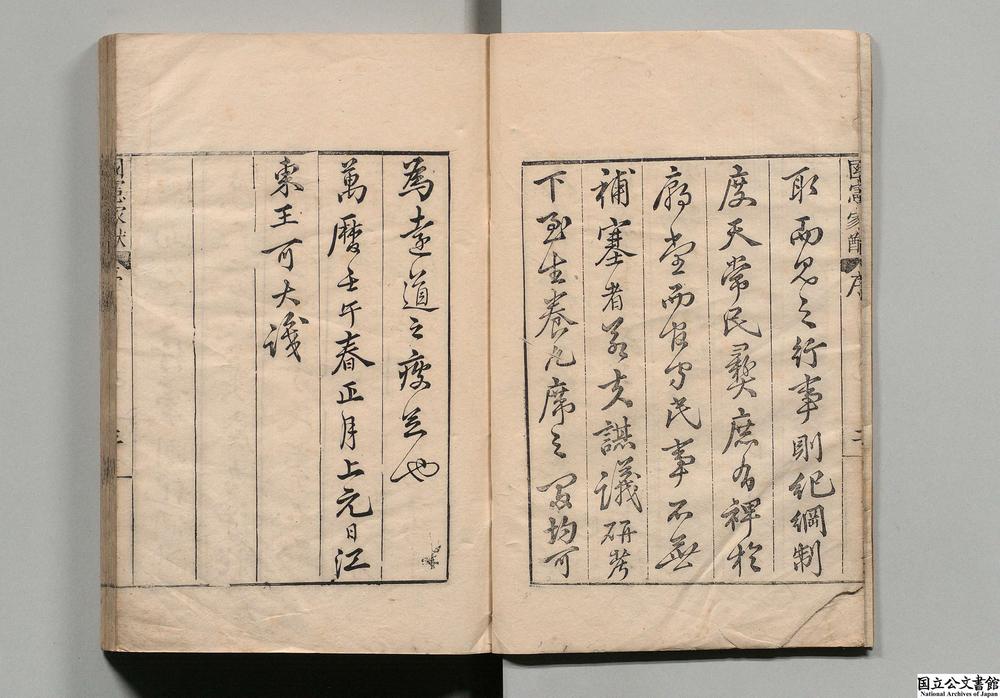 取而見之行事則紀綱制
度天常民彝庶有裨於
廊堂而官守民事不無
補塞者若夫謀議研考
下至生養几席之間均可
為遠道之疲足也
萬曆壬午春正月上元日江
東王可大識
國憲家猷 序
國憲家猷 序
国立公文書館
National Archives of Japan